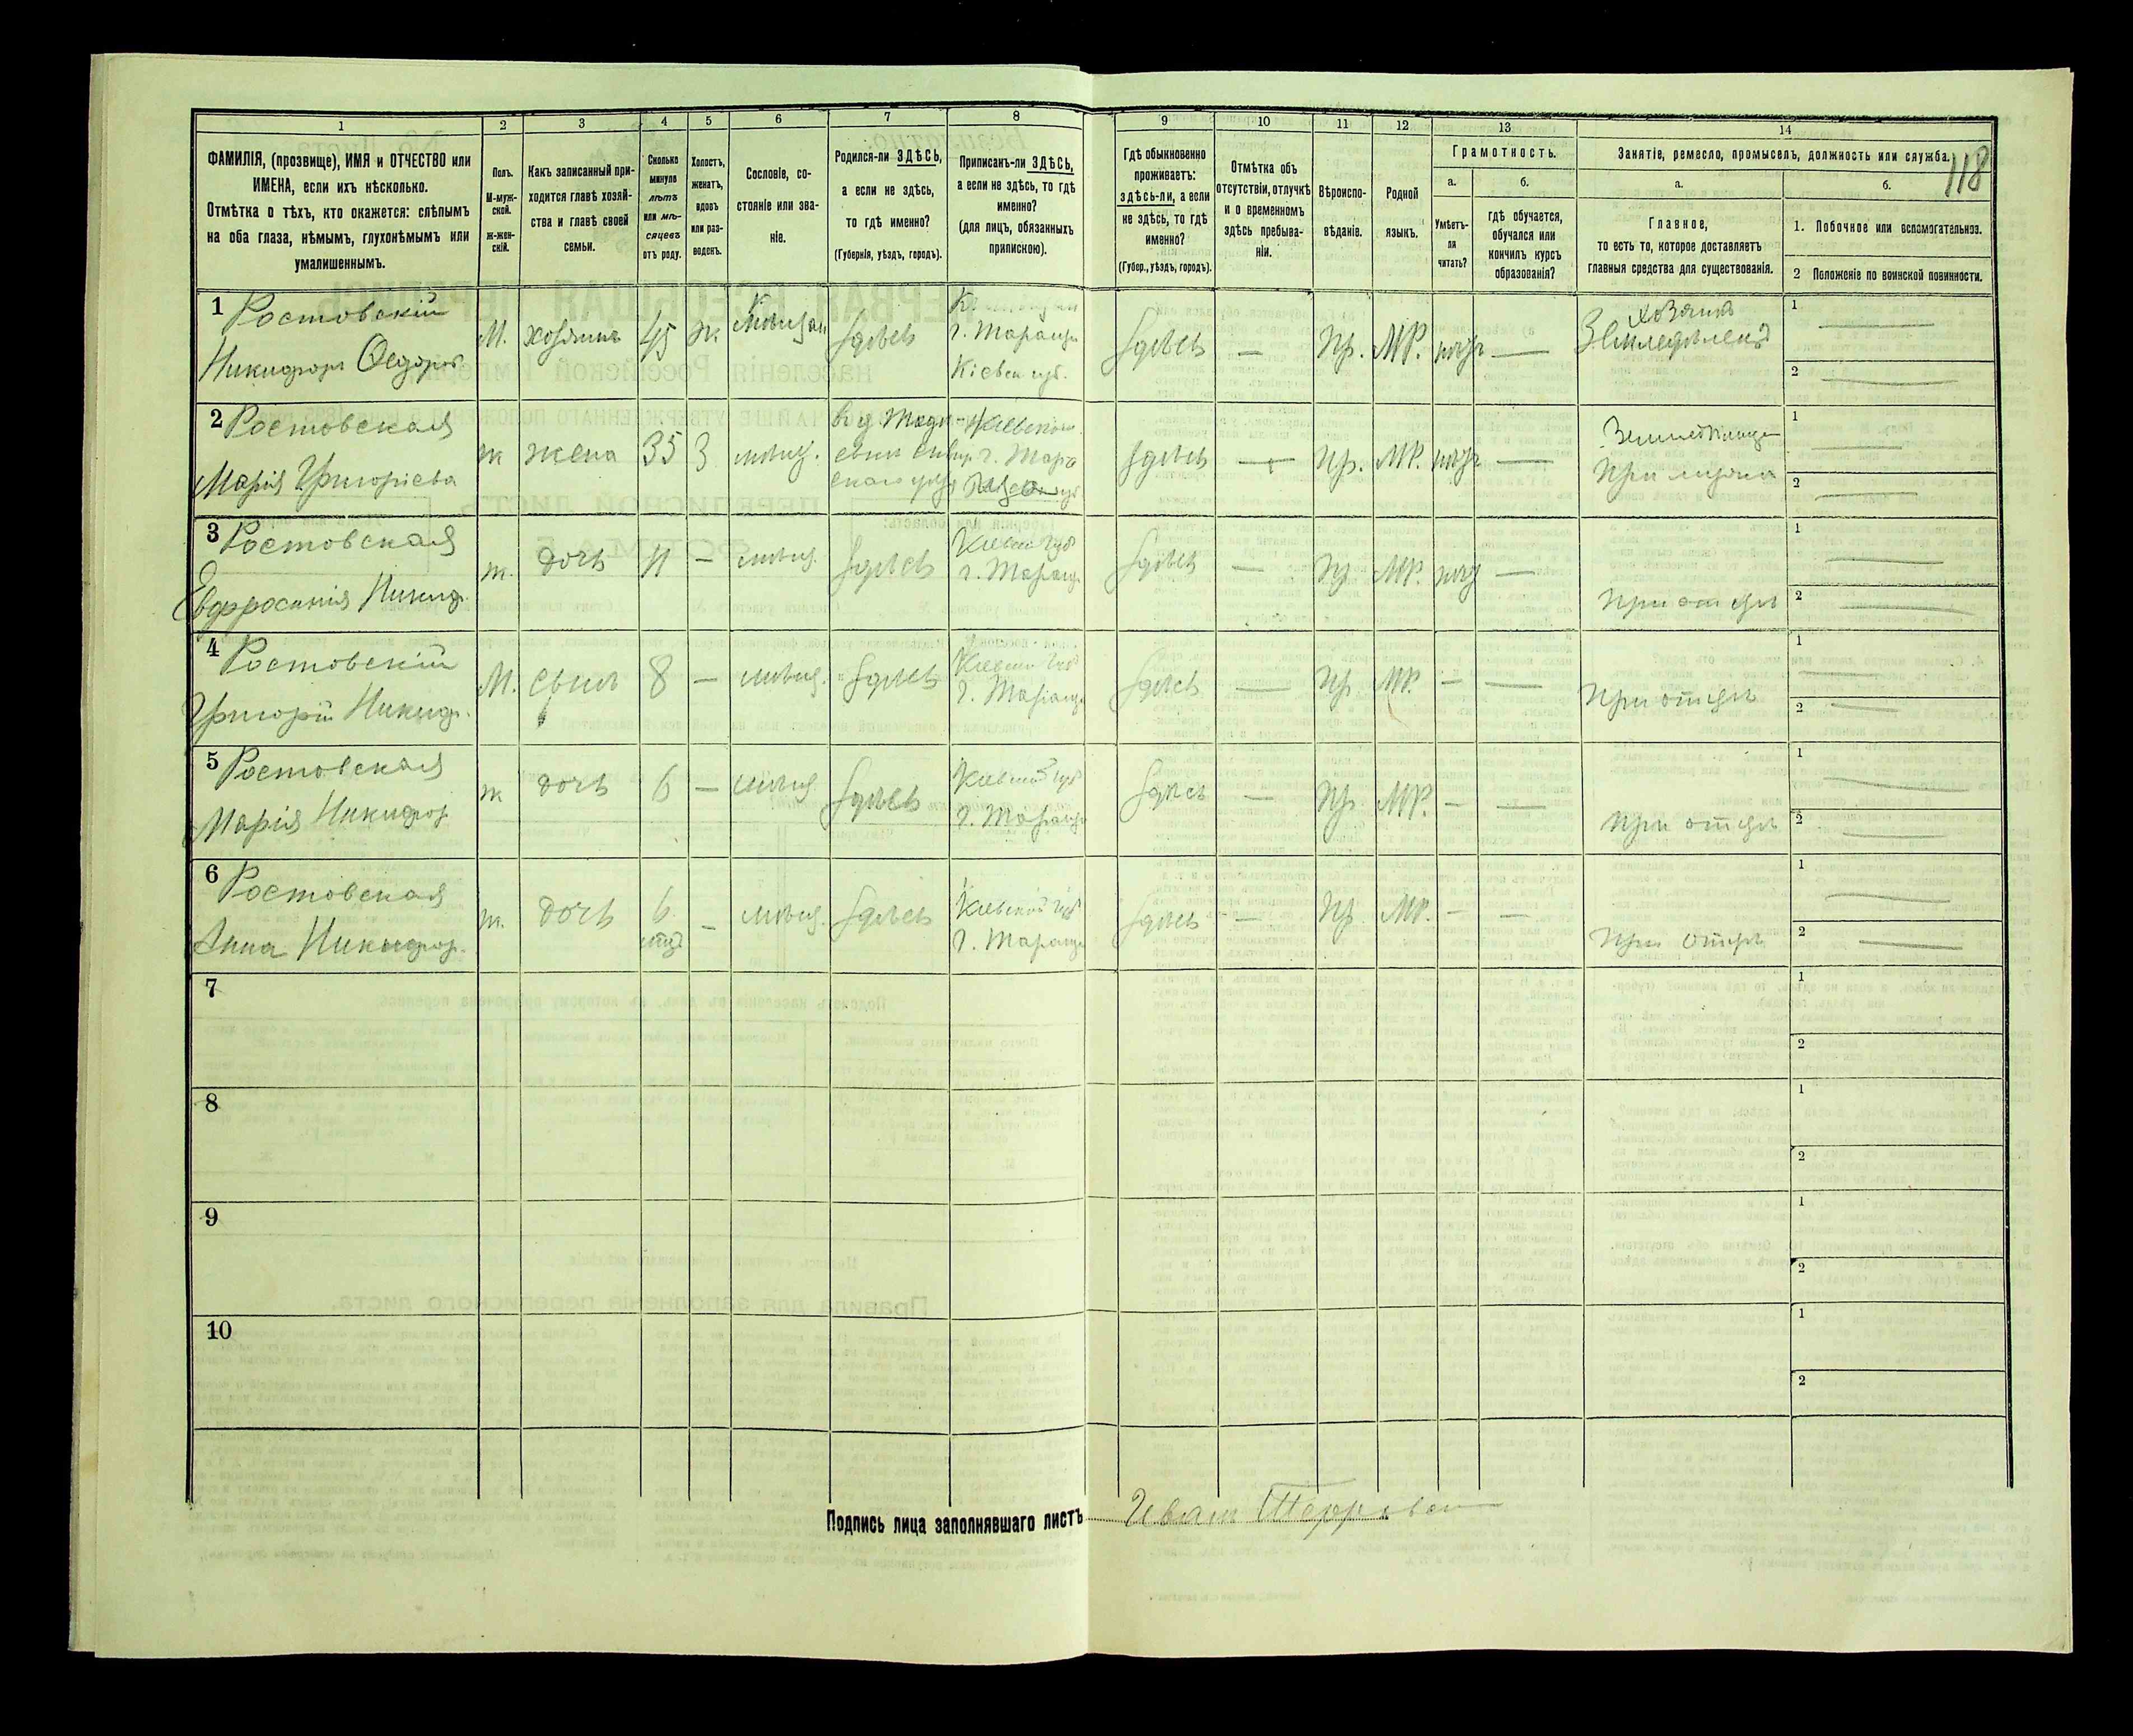 118
1 2 3 4 5 6 7 8 9 10 11 12 13 14
ФАМИЛІЯ, (прозвище), ИМЯ и ОТЧЕСТВО или
ИМЕНА, если ихъ нѣсколько.
Отмѣтка о тѣхъ, кто окажется: слѣпымъ
на оба глаза, нѣмымъ, глухонѣмымъ или
умалишеннымъ.
Полъ.
М-муж-
ской.
ж-жен-
скій.
Какъ записанный при-
ходится главѣ хозяй-
ства и главѣ своей
семьи.
Сколько
минуло
лѣтъ
или мѣ-
сяцевъ
отъ роду.
Холостъ,
женатъ,
вдовъ
или раз-
веденъ.
Сословіе, со-
стояніе или зва-
ніе.
Родился-ли ЗДѢСЬ,
а если не здѣсь,
то гдѣ именно?
(Губернія, уѣздъ, городъ).
Приписанъ-ли ЗДѢСЬ,
а если не здѣсь, то гдѣ
именно?
(для лицъ, обязанныхъ
припискою).
Гдѣ обыкновенно
проживаетъ:
здѣсь-ли, а если
не здѣсь, то гдѣ
именно?
(Губер., уѣздъ, городъ).
Отмѣтка объ
отсутствіи, отлучкѣ
и о временномъ
здѣсь пребыва-
ніи.
Вѣроиспо-
вѣданіе.
Родной
языкъ.
Грамотность.
а.
Умѣетъ-
ли
читать?
б.
гдѣ обучается,
обучался или
кончилъ курсъ
образованія?
Занятіе, ремесло, промыселъ, должность или служба.
а.
Главное,
то есть то, которое доставляетъ
главныя средства для существованія.
б.
1. Побочное или вспомогательное.
2 Положеніе по воинской повинности.
1 Ростовскій
Никифоръ Ѳедоров
М. хозяинъ 45 ж. мѣщан здѣсь
г. Таращи
Кіевск губ.
здѣсь — Пр. МР. —
хозяинъ
1
2
2 Ростовская
Марія Григоріева
ж жена 35 З мѣщ.
здѣсь — Пр. МР. —
При мужѣ
1
2
3 Ростовская
Евфросинія Никиф.
ж. дочь 11 — мѣщ. здѣсь
Кіевск губ
г. Таращ
здѣсь — Пр МР. —
При отцѣ
1
2
4 Ростовскій
Григорій Никиф.
М. сынъ 8 — мѣщ. здѣсь
Кіевск губ
г. Таращ
здѣсь — Пр. МР. — —
При отцѣ
1
2
5 Ростовская
Марія Никифор
ж дочь 6 — мѣщ здѣсь
Кіевской губ
г. Таращи
здѣсь — Пр. МР. — —
При отцѣ
1
2
6 Ростовская
Анна Никифор.
ж. дочь 6 мѣс — мѣщ. здѣсь
Кіевской губ
г. Таращ
здѣсь — Пр. МР. — —
При отцѣ
1
2
7
1
2
8
1
2
9
1
2
10
1
2
Подпись лица заполнявшаго листъ Иван